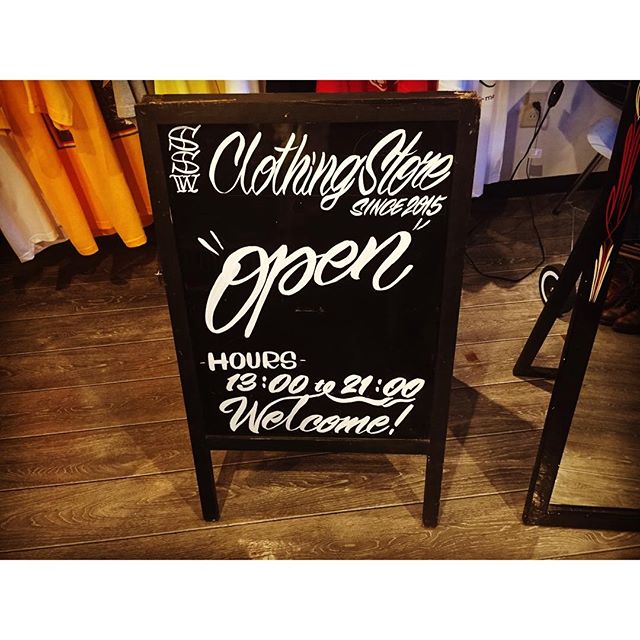 Clothing Store
SINCE 2015
"Open"
-HOURS-
13:00 to 21:00
Welcome!